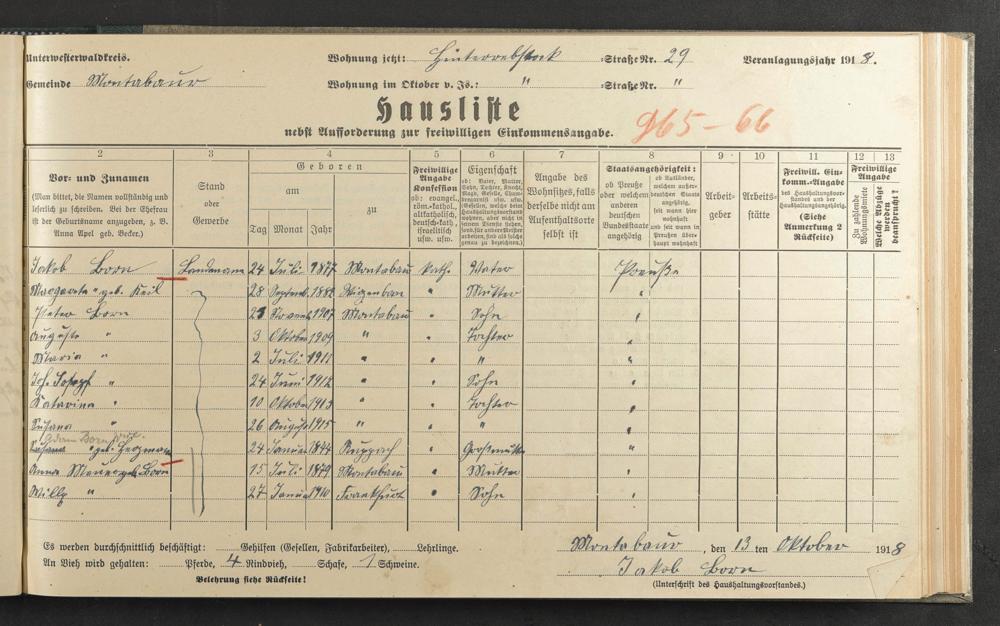 Unterwesterwaldkreis. Wohnung jetzt: Hinterrebstock Straße Nr. 29 Veranlagungsjahr 1918.
Gemeinde Montabaur Wohnung im Oktober v. Js.: " Straße Nr. "
Hausliste
nebst Aufforderung zur freiwilligen Einkommensangabe.
965-66
2 3 4 5 6 7 8 9 10 11 12 13
Vor- und Zunamen
(Man bittet, die Namen vollständig und leserlich zu schreiben. Bei der Ehefrau ist der Geburtsname anzugeben, z. B. Anna Apel geb. Becker.)
Stand oder Gewerbe
Geboren
am zu
Tag Monat Jahr
Freiwillige Angabe Konfession
ob: evangel., röm.-kathol., altkatholisch, deutsch-kath., israelitisch usw. usw.
Eigenschaft
Angabe des Wohnsitzes, falls derselbe nicht am Aufenthaltsorte selbst ist
Staatsangehörigkeit:
ob Preuße oder welchem anderen deutschen Bundesstaate angehörig
ob Ausländer, welchem außerdeutschen Staate angehörig, seit wann hier wohnhaft und seit wann in Preußen überhaupt wohnhaft
Arbeitgeber
Arbeitsstätte
Freiwill. Einkomm.-Angabe
des Haushaltungsvorstandes und der Haushaltungsangehörig.
(Siehe Anmerkung 2 Rückseite)
Freiwillige Angabe
Zu zahlende Wohnungsmiete
Welche Abzüge werden beansprucht?
Jakob Born Landmann 24 Juli 1877 Montabaur kath. Vater Preuße
Margareta " geb. Keil 28 Septemb. 1882 Mutter "
Peter Born 23 Novemb 1907 Montabaur " Sohn "
Auguste " 3 Oktober 1909 " " Tochter "
Maria " 2 Juli 1911 " " " "
Joh. Josepf " 24 Juni 1912 " " Sohn "
Katarina " 10 Oktober 1913 " " Tochter "
Susana " 26 August 1915 " " " "
Adam Born
Susana " geb. 24 Januar 1844 Ruppach " Großmutter "
Anna geb. Born 15 Juli 1879 Montabaur " Mutter "
Willy " 27 Januar 1910 Frankfurt " Sohn "
Es werden durchschnittlich beschäftigt: Gehilfen (Gesellen, Fabrikarbeiter), Lehrlinge.
An Vieh wird gehalten: Pferde, 4 Rindvieh, Schafe, 1 Schweine.
Belehrung siehe Rückseite!
Montabaur, den 13 ten Oktober 1918
Jakob Born
(Unterschrift des Haushaltungsvorstandes.)